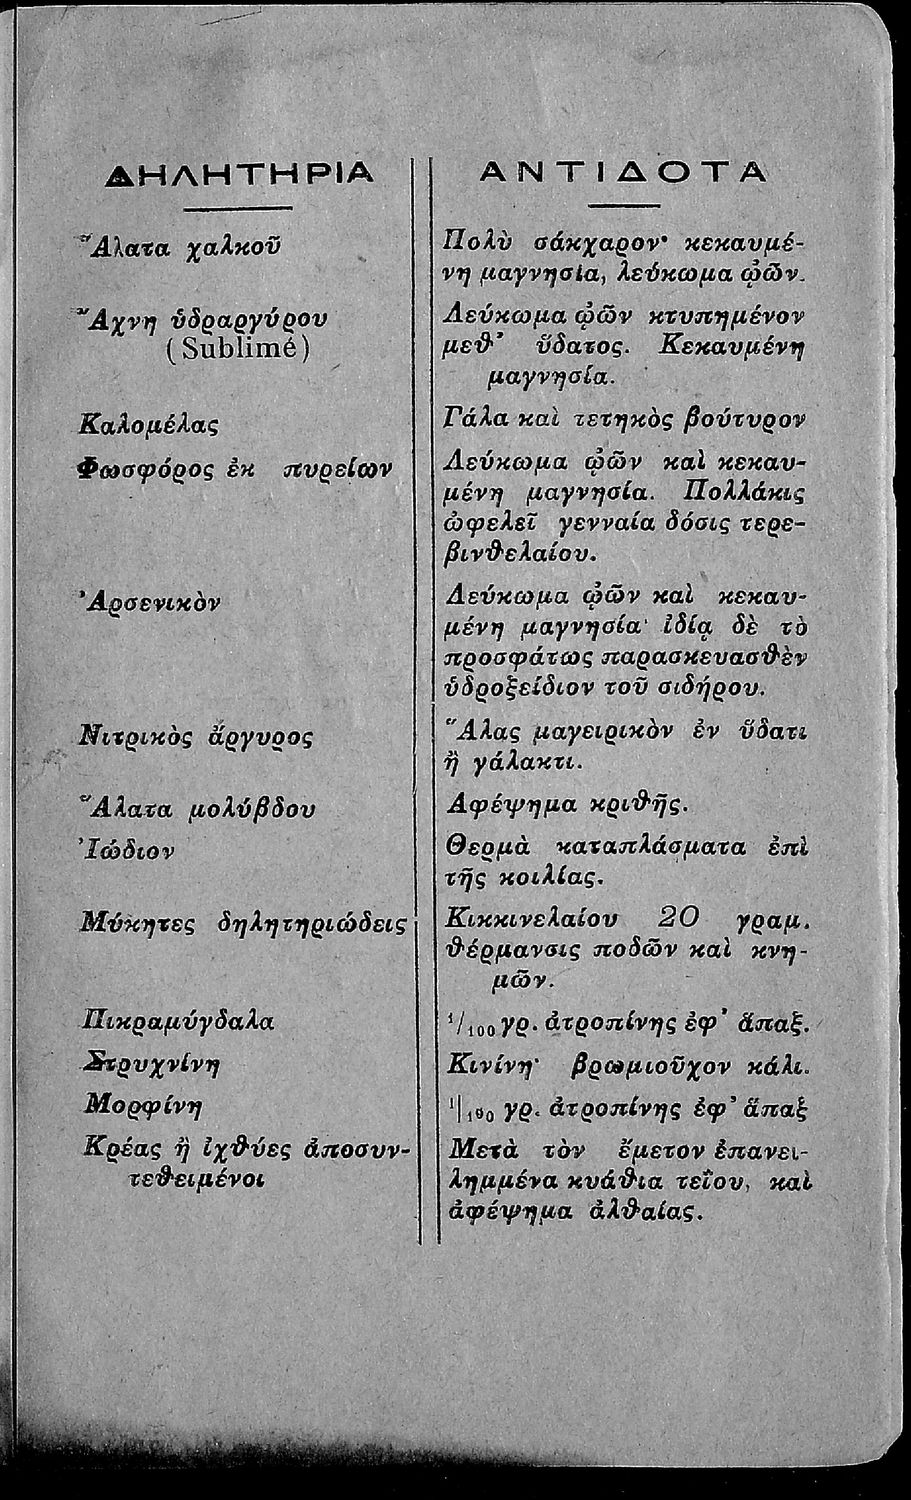 ΔΗΛΗΤΗΡΙΑ
ΑΝΤΙΔΟΤΑ
Ἅλατα χαλκοῦ
Πολὺ σάκχαρον· κεκαυμέ-
νη μαγνησία, λεύκωμα ᾠῶν.
Ἄχνη ὑδραργύρου
(Sublimé)
Λεύκωμα ᾠῶν κτυπημένον
μεθ’ ὕδατος. Κεκαυμένη
μαγνησία.
Καλομέλας
Γάλα καὶ τετηκὸς βούτυρον
Φωσφόρος ἐκ πυρείων
Λεύκωμα ᾠῶν καὶ κεκαυ-
μένη μαγνησία. Πολλάκις
ὠφελεῖ γενναία δόσις τερε-
βινθελαίου.
Ἀρσενικὸν
Λεύκωμα ᾠῶν καὶ κεκαυ-
μένη μαγνησία· ἰδίᾳ δὲ τὸ
προσφάτως παρασκευασθὲν
ὑδροξείδιον τοῦ σιδήρου.
Νιτρικὸς ἄργυρος
Ἅλας μαγειρικὸν ἐν ὕδατι
ἢ γάλακτι.
Ἅλατα μολύβδου
Αφέψημα κριθῆς.
Ἰώδιον
Θερμὰ καταπλάσματα ἐπὶ
τῆς κοιλίας.
Μύκητες δηλητηριώδεις
Κικκινελαίου 20 γραμ.
θέρμανσις ποδῶν καὶ κνη-
μῶν.
Πικραμύγδαλα
1/100 γρ. ἀτροπίνης ἐφ’ ἅπαξ.
Στρυχνίνη
Κινίνη· βρωμιοῦχον κάλι.
Μορφίνη
1/100 γρ. ἀτροπίνης ἐφ’ ἅπαξ
Κρέας ἢ ἰχθύες ἀποσυν-
τεθειμένοι
Μετὰ τὸν ἔμετον ἐπανει-
λημμένα κυάθια τεΐου, καὶ
ἀφέψημα ἀλθαίας.